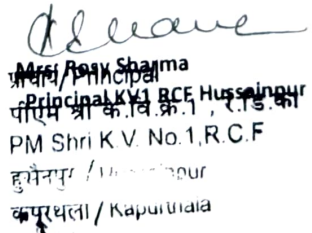 Mrs. Rosy Sharma
प्राचार्य/Principal
Principal KV1 RCF Hussainpur
पीएम श्री के.वि.क्र.1, र.डि.का
PM Shri K.V. No.1,R.C.F
हुसैनपुर /
कपूरथला / Kapurthala